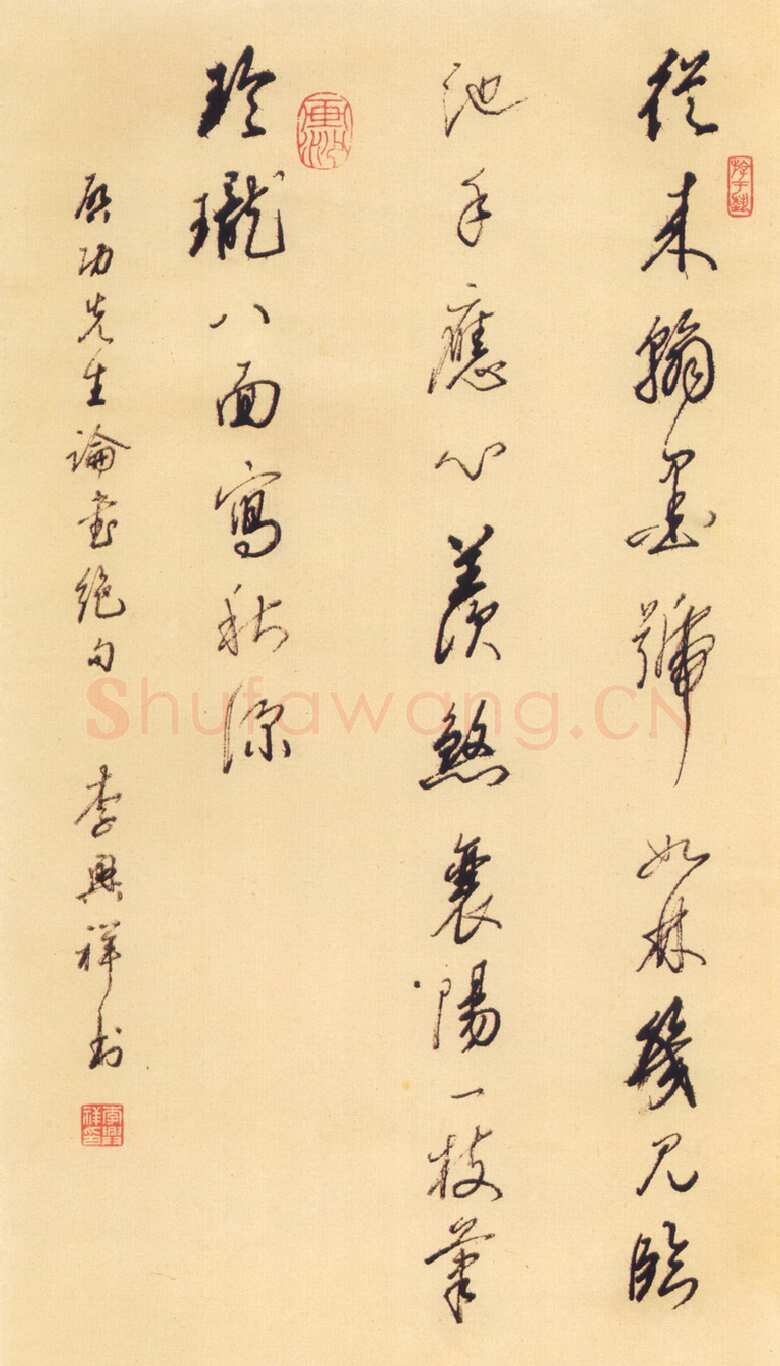 從来翰墨號如林幾見臨
池手應心羨煞襄陽一枝筆
玲瓏八面寫秋深
啟功先生論書絕句 李興祥书
李興祥印
Shufawang.CN